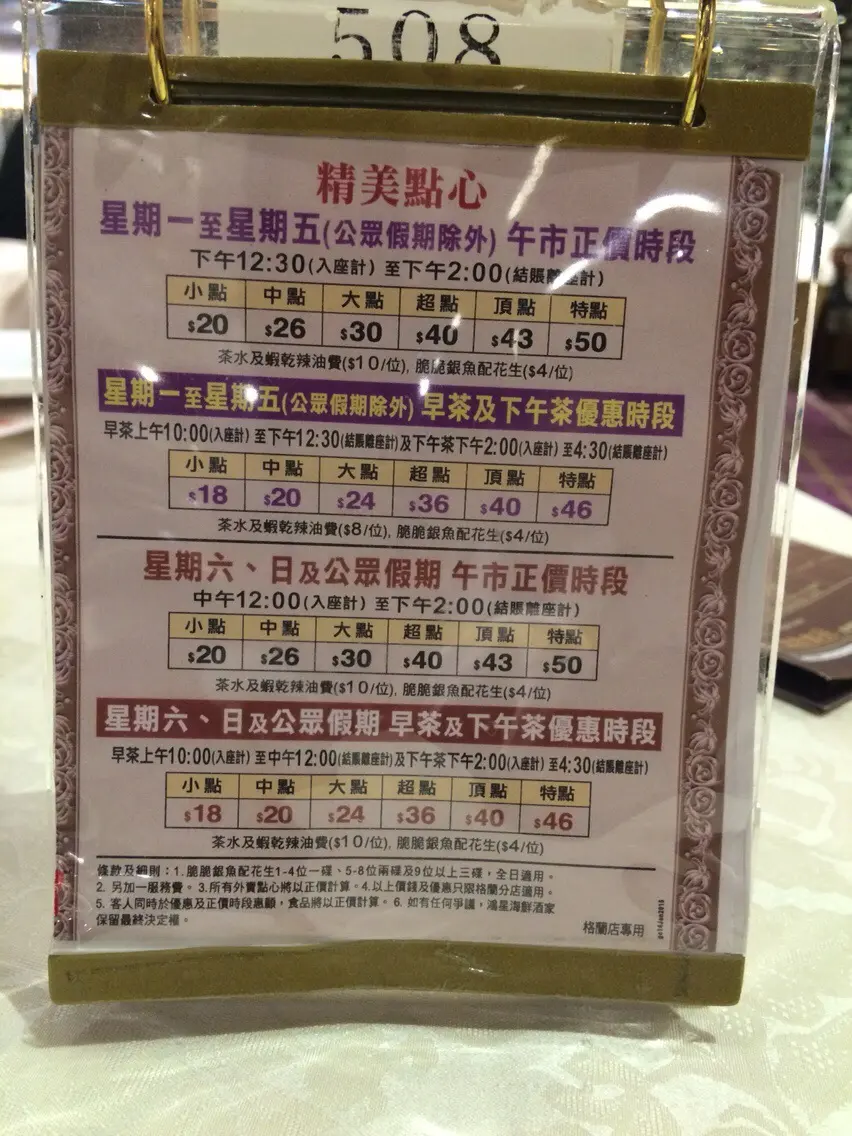 508
精美點心
星期一至星期五(公眾假期除外) 午市正價時段
下午12:30(入座計) 至下午2:00(結賬離座計)
小點 中點 大點 超點 頂點 特點
$20 $26 $30 $40 $43 $50
茶水及蝦乾辣油費($10/位), 脆脆銀魚配花生($4/位)
星期一至星期五(公眾假期除外) 早茶及下午茶優惠時段
早茶上午10:00(入座計) 至下午12:30(結賬離座計)及下午茶下午2:00(入座計) 至4:30(結賬離座計)
小點 中點 大點 超點 頂點 特點
$18 $20 $24 $36 $40 $46
茶水及蝦乾辣油費($8/位), 脆脆銀魚配花生($4/位)
星期六、日及公眾假期 午市正價時段
中午12:00(入座計) 至下午2:00(結賬離座計)
小點 中點 大點 超點 頂點 特點
$20 $26 $30 $40 $43 $50
茶水及蝦乾辣油費($10/位), 脆脆銀魚配花生($4/位)
星期六、日及公眾假期 早茶及下午茶優惠時段
早茶上午10:00(入座計) 至中午12:00(結賬離座計)及下午茶下午2:00(入座計) 至4:30(結賬離座計)
小點 中點 大點 超點 頂點 特點
$18 $20 $24 $36 $40 $46
茶水及蝦乾辣油費($10/位), 脆脆銀魚配花生($4/位)
條款及細則：1. 脆脆銀魚配花生1-4位一碟、5-8位兩碟及9位以上三碟，全日適用。
2. 另加一服務費。 3.所有外賣點心將以正價計算。4.以上價錢及優惠只限格蘭分店適用。
5. 客人同時於優惠及正價時段惠顧，食品將以正價計算。 6. 如有任何爭議，鴻星海鮮酒家
保留最終決定權。
格蘭店專用